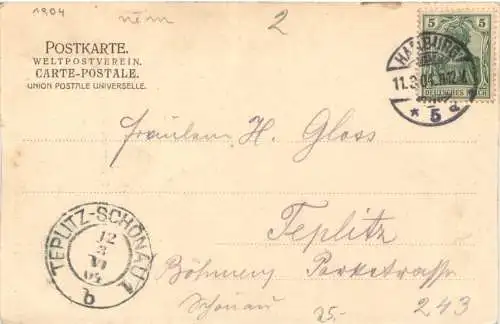 1904
něm
2
POSTKARTE.
WELTPOSTVEREIN.
CARTE-POSTALE.
UNION POSTALE UNIVERSELLE.
5 5
DEUTSCHES REICH
HAMBURG
11.3.04.
* 5 d
Fräulein H. Glass
Teplitz
Böhmen Parkstrasse
Schönau
TEPLITZ-SCHÖNAU 1
12
3
VI
04
b
25.-
243